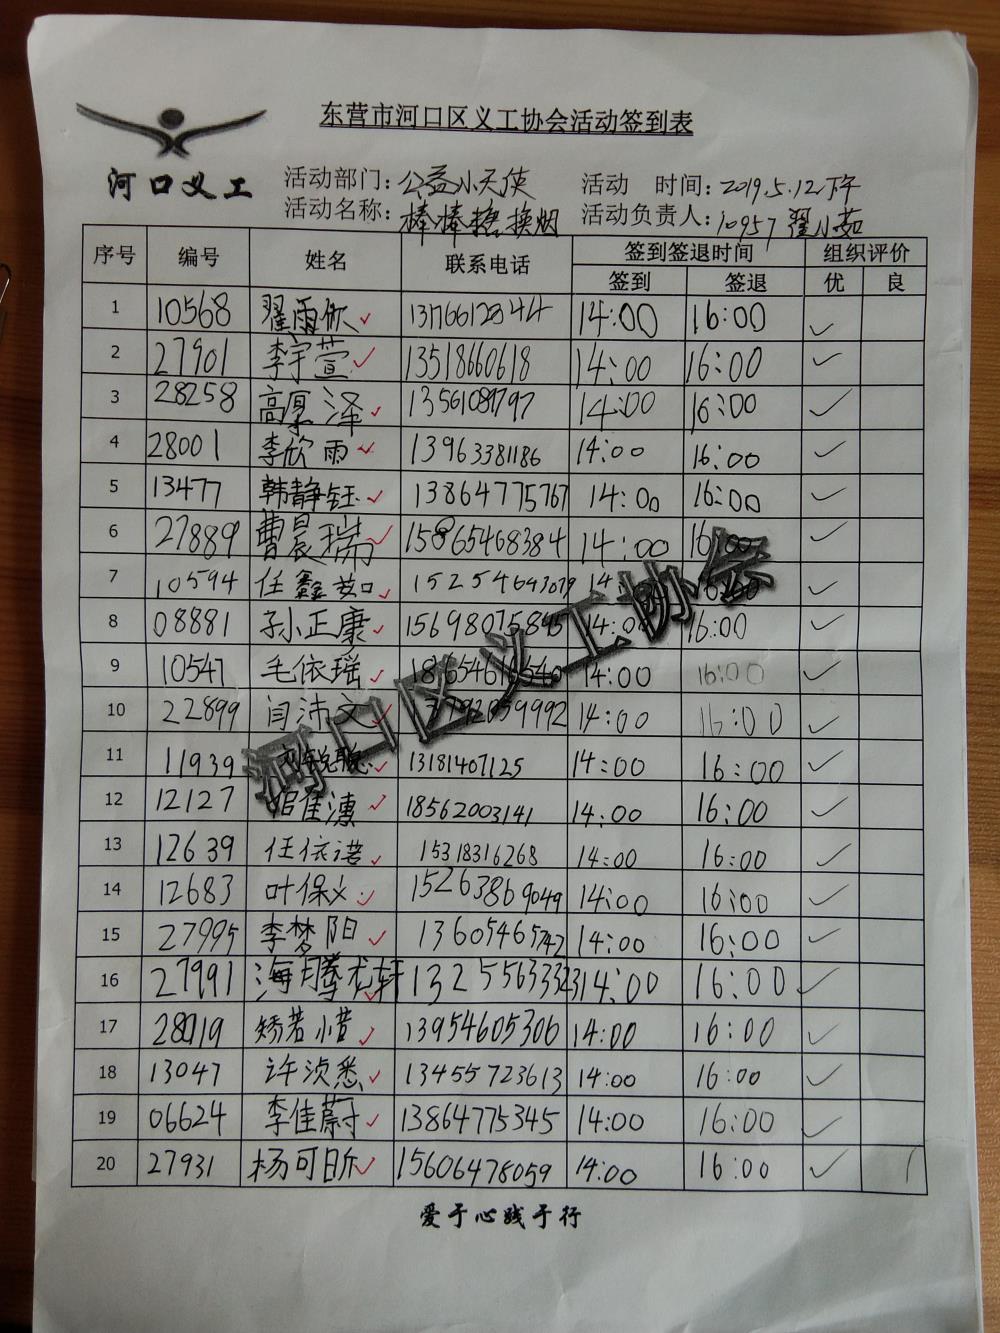 东营市河口区义工协会活动签到表
河口义工
活动部门：公益小天使 活动 时间：2019.5.12下午
活动名称：棒棒糖换烟 活动负责人：10957 翟小茹
序号 编号 姓名 联系电话 签到签退时间 组织评价
签到 签退 优 良
1 10568 翟雨欣 ✓ 1376612844 14:00 16:00 ✓
2 27901 李宇萱 ✓ 13518660618 14:00 16:00 ✓
3 28258 高景泽 ✓ 14:00 16:00 ✓
4 28001 李欣雨 ✓ 13963381186 14:00 16:00 ✓
5 13477 韩静钰 ✓ 13864775767 14:00 16:00 ✓
6 27889 曹晨瑞 ✓ 15865468384 14:00 16:00 ✓
7 10594 任鑫茹 ✓ 15254643079 14: 16:00 ✓
8 08881 孙正康 ✓ 15698075845 14:00 16:00 ✓
9 10547 毛依瑶 ✓ 14:00 16:00 ✓
10 22899 闫沛文 ✓ 14:00 16:00 ✓
11 11939 ✓ 13181407125 14:00 16:00 ✓
12 12127 ✓ 18562003141 14:00 16:00 ✓
13 12639 任依诺 ✓ 15318316268 14:00 16:00 ✓
14 12683 叶保义 ✓ 15263869049 14:00 16:00 ✓
15 27995 李梦阳 ✓ 13605465742 14:00 16:00 ✓
16 27991 海腾龙轩 ✓ 14:00 16:00 ✓
17 28019 矫若惜 ✓ 13954605306 14:00 16:00 ✓
18 13047 许浈悉 ✓ 13455723613 14:00 16:00 ✓
19 06624 李佳蔚 ✓ 13864775345 14:00 16:00 ✓
20 27931 杨可昕 ✓ 15606478059 14:00 16:00 ✓
河口区义工协会
爱于心践于行